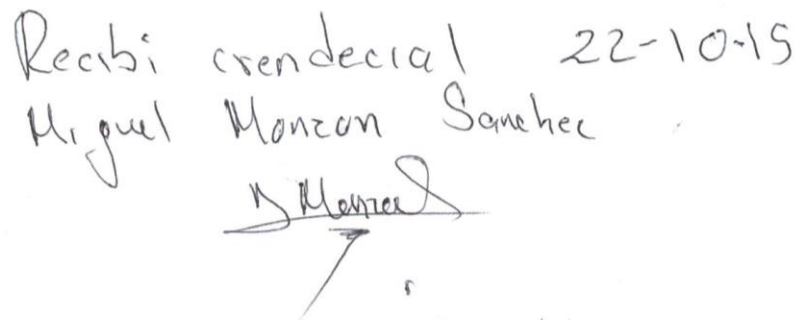 Recibi crendecial 22-10-15
Miguel Monzon Sanchez